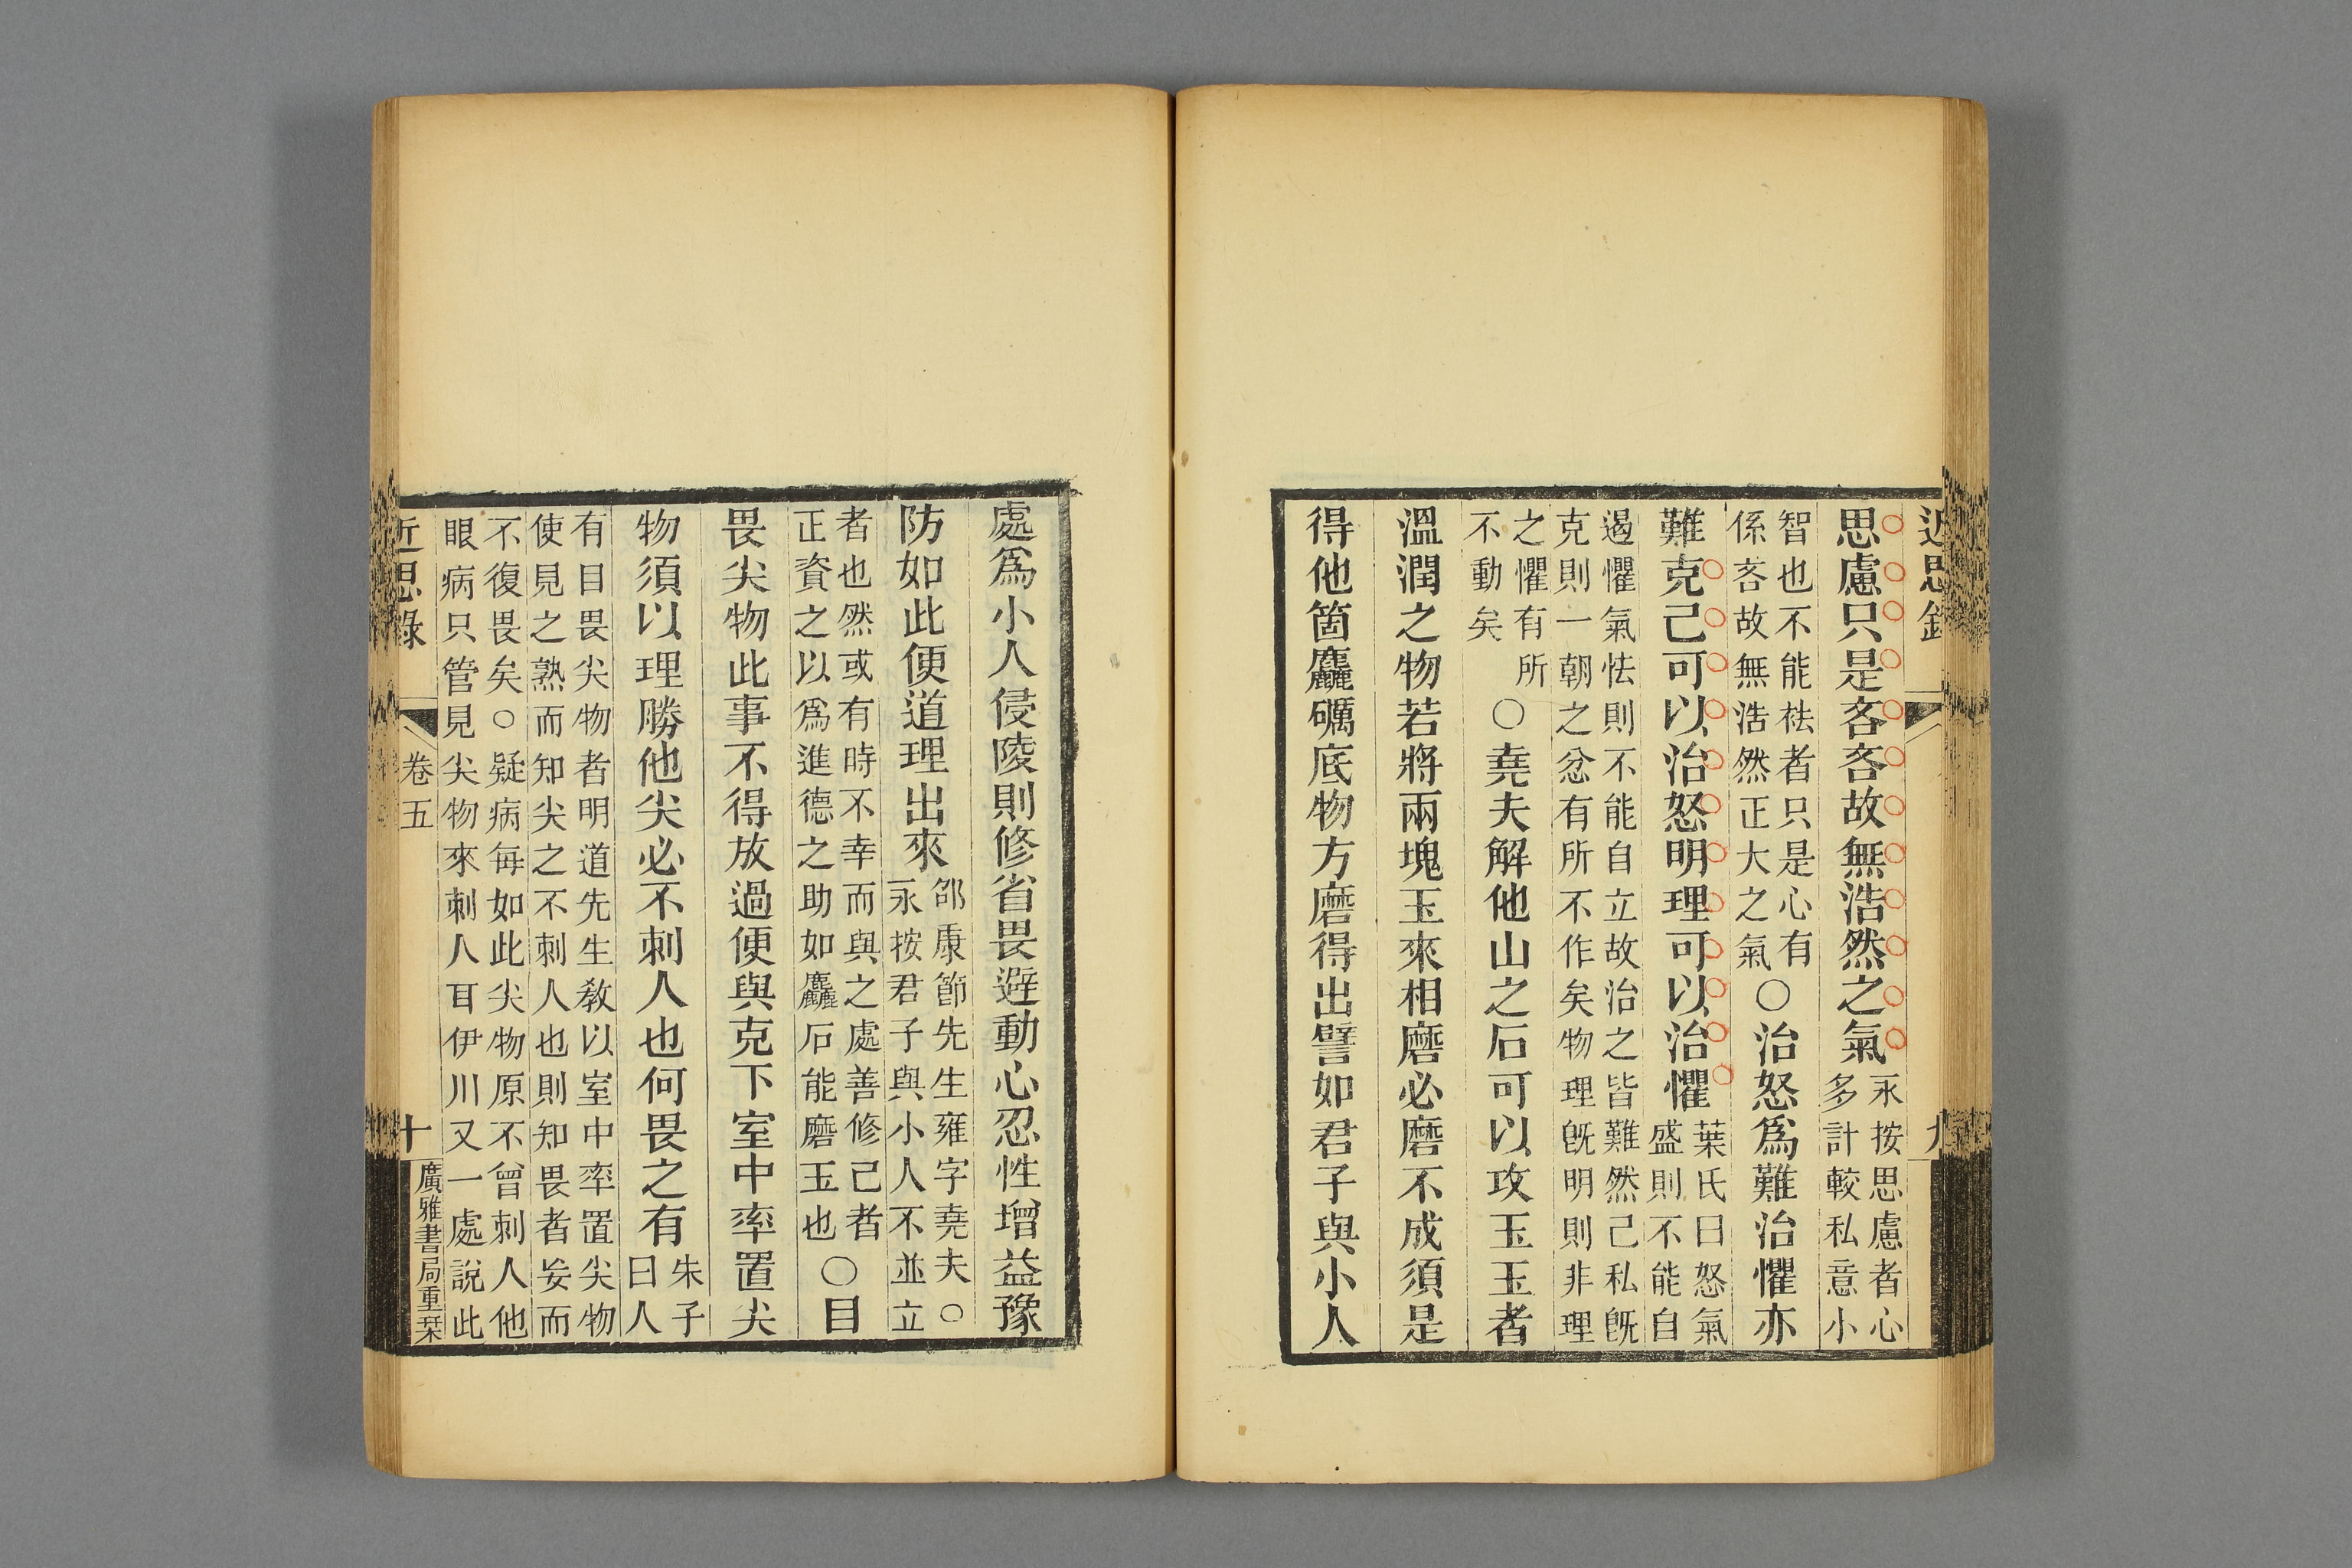 近思錄
九
思慮只是吝吝故無浩然之氣
永按思慮者心
多計較私意小
智也不能祛者只是心有
係吝故無浩然正大之氣
○治怒爲難治懼亦
難克己可以治怒明理可以治懼
葉氏曰怒氣
盛則不能自
遏懼氣怯則不能自立故治之皆難然己私旣
克則一朝之忿有所不作矣物理旣明則非理
之懼有所
不動矣
○堯夫解他山之石可以攻玉玉者
溫潤之物若將兩塊玉來相磨必磨不成須是
得他箇麤礪底物方磨得出譬如君子與小人
處爲小人侵陵則修省畏避動心忍性增益豫
防如此便道理出來
邵康節先生雍字堯夫○
永按君子與小人不並立
者也然或有時不幸而與之處善修己者
正資之以爲進德之助如麤石能磨玉也
○目
畏尖物此事不得放過便與克下室中率置尖
物須以理勝他尖必不刺人也何畏之有
朱子
曰人
有目畏尖物者明道先生教以室中率置尖物
使見之熟而知尖之不刺人也則知畏者妄而
不復畏矣○疑病每如此尖物原不曾刺人他
眼病只管見尖物來刺人耳伊川又一處說此
近思錄
卷五
十
廣雅書局重栞